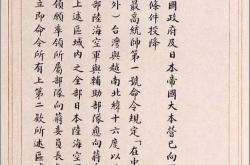 國政府及日本帝國大本營已向
條件投降
最高統帥第一號命令規定「在中
外）台灣與越南北緯十六度以
部陸海空軍與輔助部隊應向蔣
上述區域內之全部日本陸海空軍
領願率領所屬部隊向蔣委員長
立即命令所有上第二款所述區